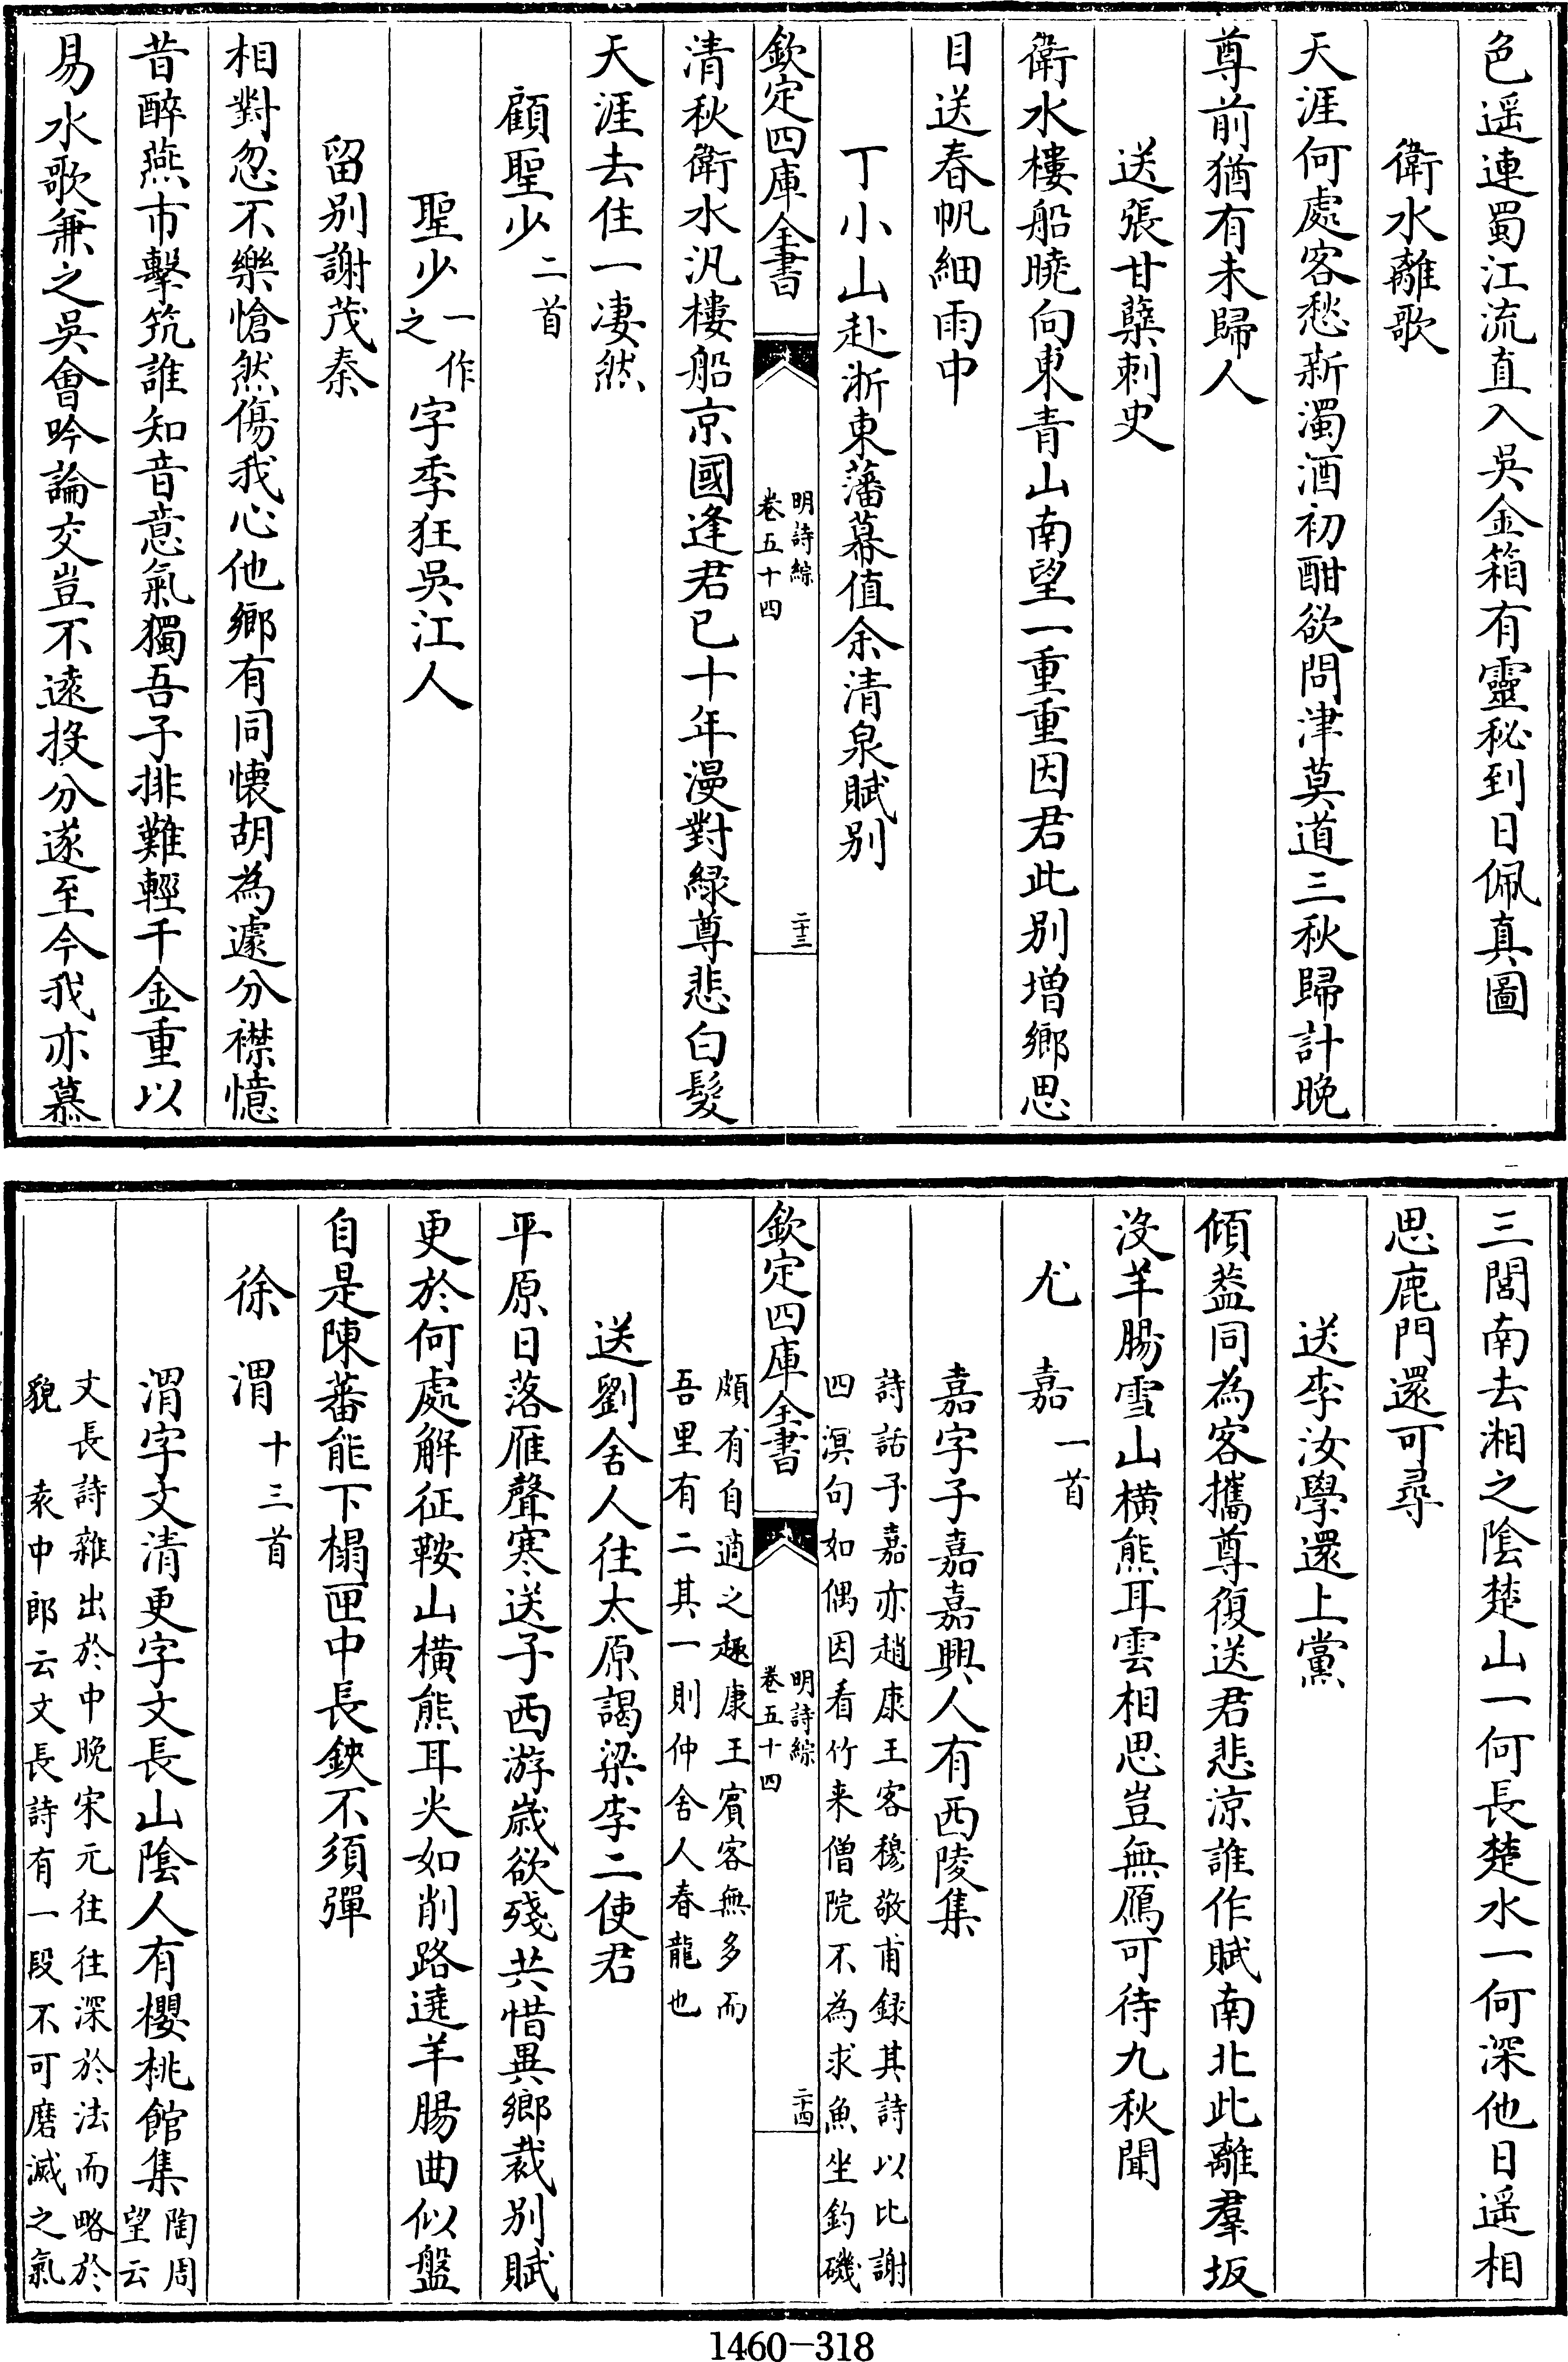 色遥連蜀江流直入吳金箱有靈秘到日佩真圖
衛水離歌
天涯何處客愁新濁酒初酣欲問津莫道三秋歸計晚
尊前猶有未歸人
送張甘蘖刺史
衛水樓船曉向東青山南望一重重因君此别増鄉思
目送春帆細雨中
丁小山赴浙東藩幕值余清泉賦别
欽定四庫全書
明詩綜
卷五十四
二十三
清秋衛水汎樓船京國逢君已十年漫對緑尊悲白髮
天涯去住一凄然
顧聖少二首
聖少一作之字季狂吳江人
留别謝茂秦
相對忽不樂愴然傷我心他鄉有同懐胡為遽分襟憶
昔醉燕市擊筑誰知音意氣獨吾子排難輕千金重以
易水歌兼之吳會吟論交豈不逺投分遂至今我亦慕
三閭南去湘之隂楚山一何長楚水一何深他日遥相
思鹿門還可尋
送李汝學還上黨
傾葢同為客攜尊復送君悲涼誰作賦南北此離羣坂
没羊腸雪山横熊耳雲相思豈無鴈可待九秋聞
尤嘉一首
嘉字子嘉嘉興人有西陵集
詩話子嘉亦趙康王客穆敬甫録其詩以比謝
四溟句如偶因看竹来僧院不為求魚坐釣磯
欽定四庫全書
明詩綜
卷五十四
二十四
頗有自適之趣康王賔客無多而
吾里有二其一則仲舍人春龍也
送劉舍人往太原謁梁李二使君
平原日落雁聲寒送子西游歳欲殘共惜異鄉裁别賦
更於何處解征鞍山横熊耳尖如削路遶羊腸曲似盤
自是陳蕃能下榻匣中長鋏不須彈
徐渭十三首
渭字文清更字文長山隂人有櫻桃館集陶周望云
文長詩雜出於中晚宋元往往深於法而略於
貌 袁中郎云文長詩有一段不可磨滅之氣
1460-318